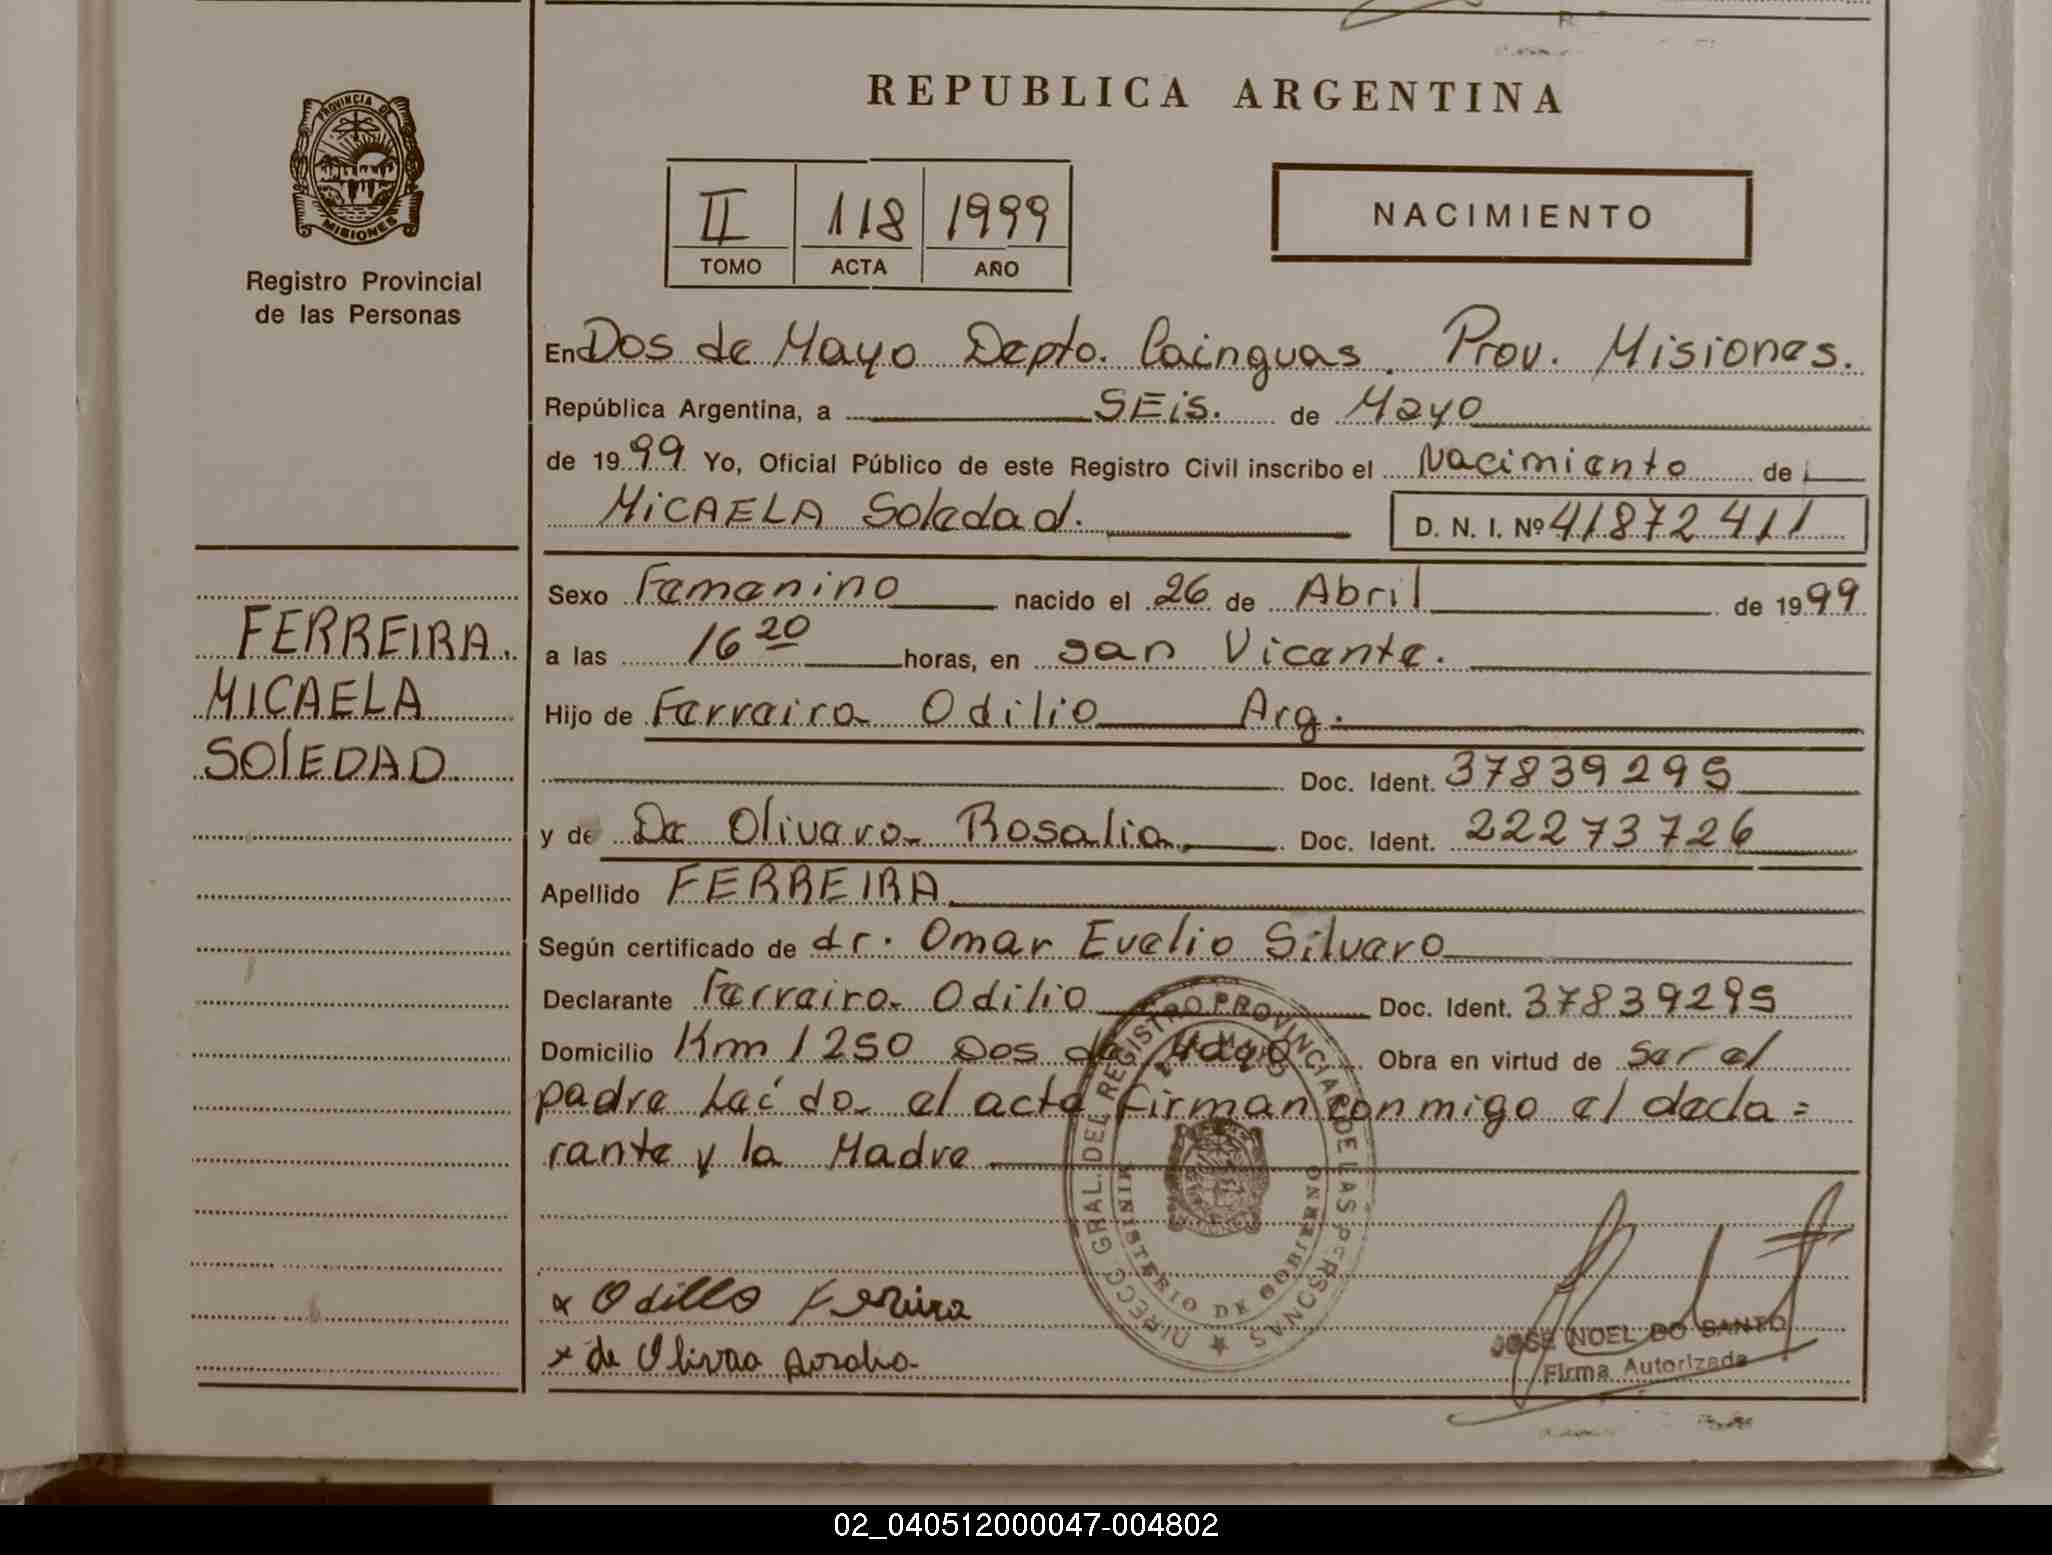 REPUBLICA ARGENTINA
PROVINCIA DE
MISIONES
Registro Provincial
de las Personas
II 118 1999
TOMO ACTA AÑO
NACIMIENTO
En Dos de Mayo Depto. Cainguas. Prov. Misiones.
República Argentina, a SEis. de Mayo
de 1999 Yo, Oficial Público de este Registro Civil inscribo el Nacimiento de
MiCAELA Soledad.
D. N. I. Nº 41872411
FERREIRA.
MICAELA
SOlEDAD
Sexo Femenino nacido el 26 de Abril de 1999
a las 16 20 horas, en san Vicente.
Hijo de Ferreira Odilio Arg.
Doc. Ident. 37839295
y de De Olivera Rosalia. Doc. Ident. 22273726
Apellido FERREIRA
Según certificado de dr. Omar Evelio Silvero
Declarante Ferreira Odilio Doc. Ident. 37839295
Domicilio Km 1250 Dos de Mayo Obra en virtud de ser el
padre Leído el acta firman conmigo el decla =
rante y la Madre
DIRECC GRAL. DEL REGISTRO PROVINCIAL DE LAS PERSONAS
MINISTERIO DE GOBIERNO
x Odilio Ferreira
x de Olivera
JOSE NOEL DO SANTO
Firma Autorizada
02_040512000047-004802